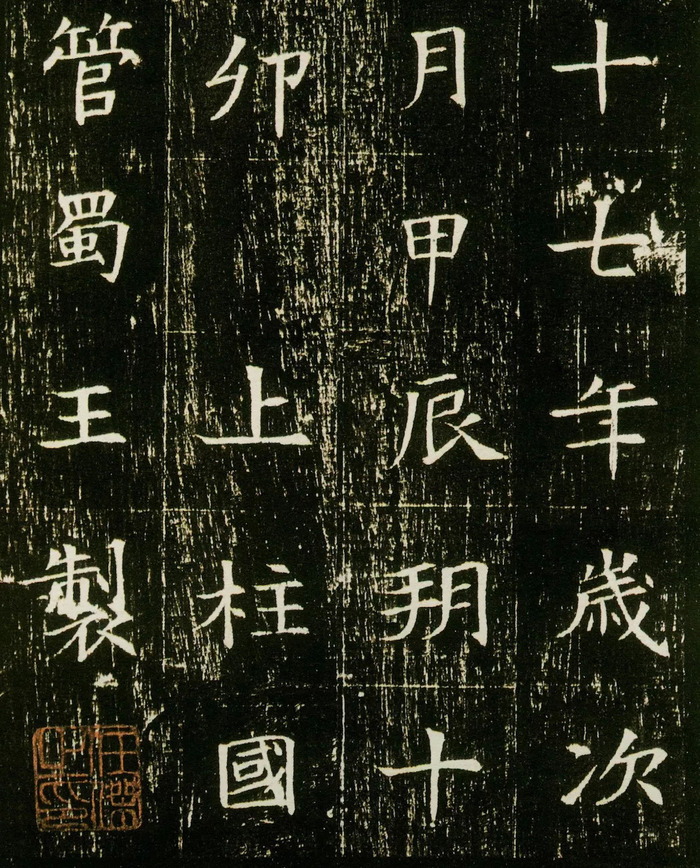 十七年歳次
月甲辰朔十
卯 上柱國
管蜀王製